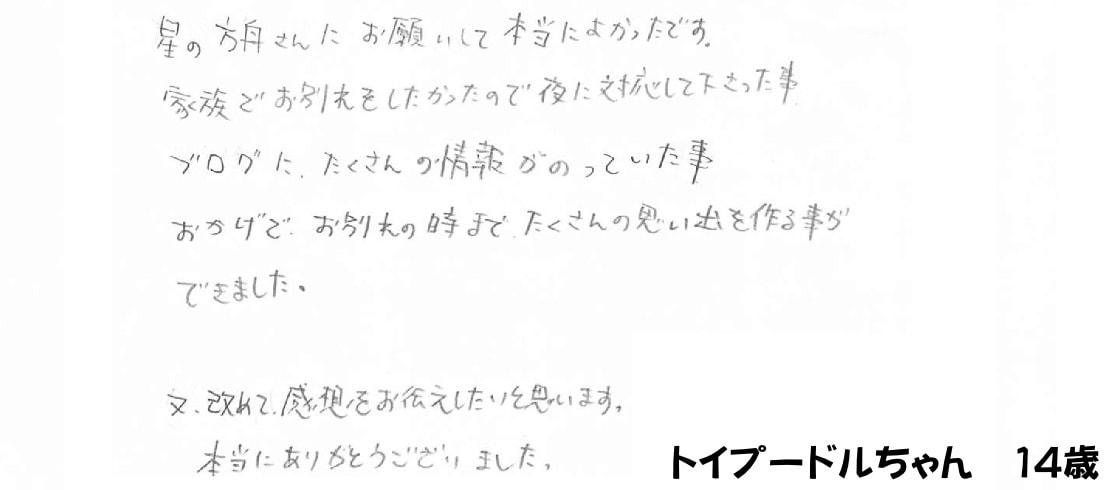 星の方舟さんに お願いして本当によかったです。
家族でお別れをしたかったので夜に対応して下さった事
ブログに、たくさんの情報がのっていた事
おかげで、お別れの時まで、たくさんの思い出を作る事が
できました。
又、改めて、感想をお伝えしたいと思います。
本当にありがとうございました。
トイプードルちゃん 14歳